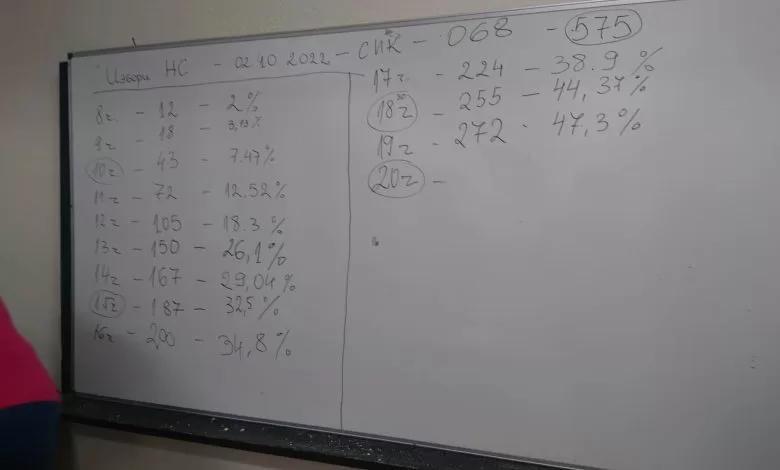 Избори НС - 02.10 2022 - СИК - 068 - 575
8ч. - 12 - 2%
9ч - 18 - 3,13%
10ч - 43 - 7.47%
11ч - 72 - 12.52%
12ч - 105 - 18.3%
13ч - 150 - 26,1%
14ч - 167 - 29,04%
15ч - 187 - 32,5%
16ч - 200 - 34,8%
17ч. - 224 - 38.9%
18³⁰ч - 255 - 44,37%
19ч - 272 - 47,3%
20ч -